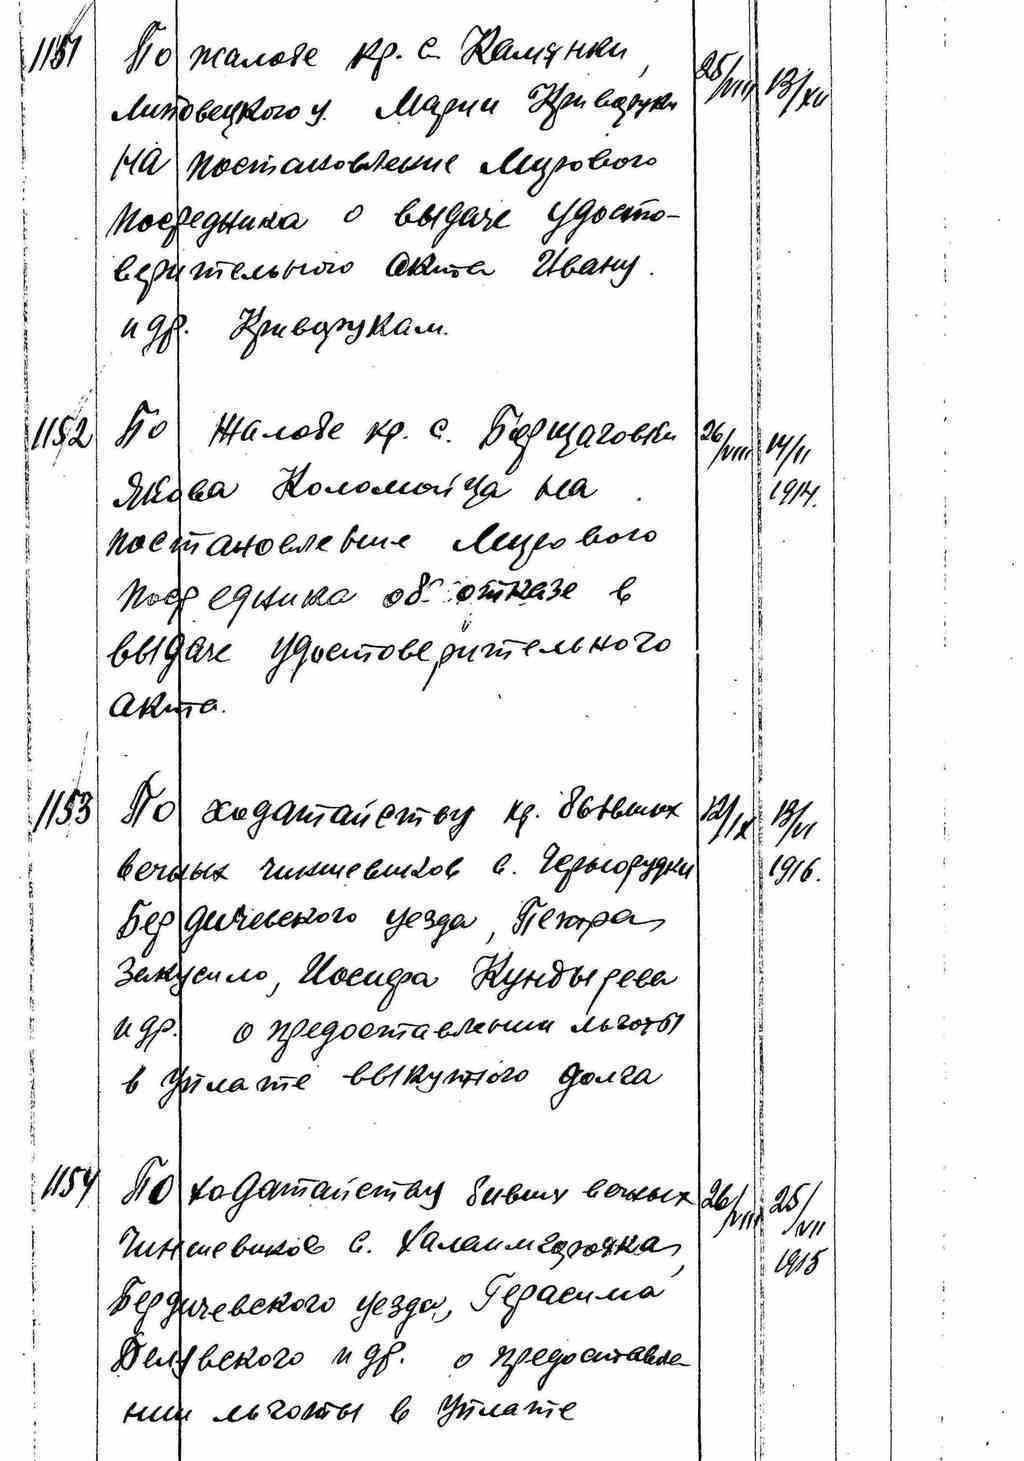 1151 По жалобе кр. с. Камянки, 25/VIII 13/XII
Липовецкого у. Марии Криворуки
на постановление Мирового
посредника о выдаче удосто-
верительного акта Ивану
и др. Криворукам.
1152 По жалобе кр. с. Борщаговки 26/VIII 14/II
Якова Коломойца на 1914.
постановление Мирового
посредника об отказе в
выдаче удостоверительного
акта.
1153 По ходатайству кр. бывших 12/IX 13/VI
вечных чиншевиков с. Чернорудки 1916.
Бердичевского уезда, Петра
Закусило, Иосифа
и др. о предоставлении льготы
в уплате выкупного долга
1154 По ходатайству бывш вечных 26/VIII 25/VII
Чиншевиков с. Халаимгородка, 1915
Бердичевского уезда, Герасима
и др. о предоставле-
нии льготы в уплате